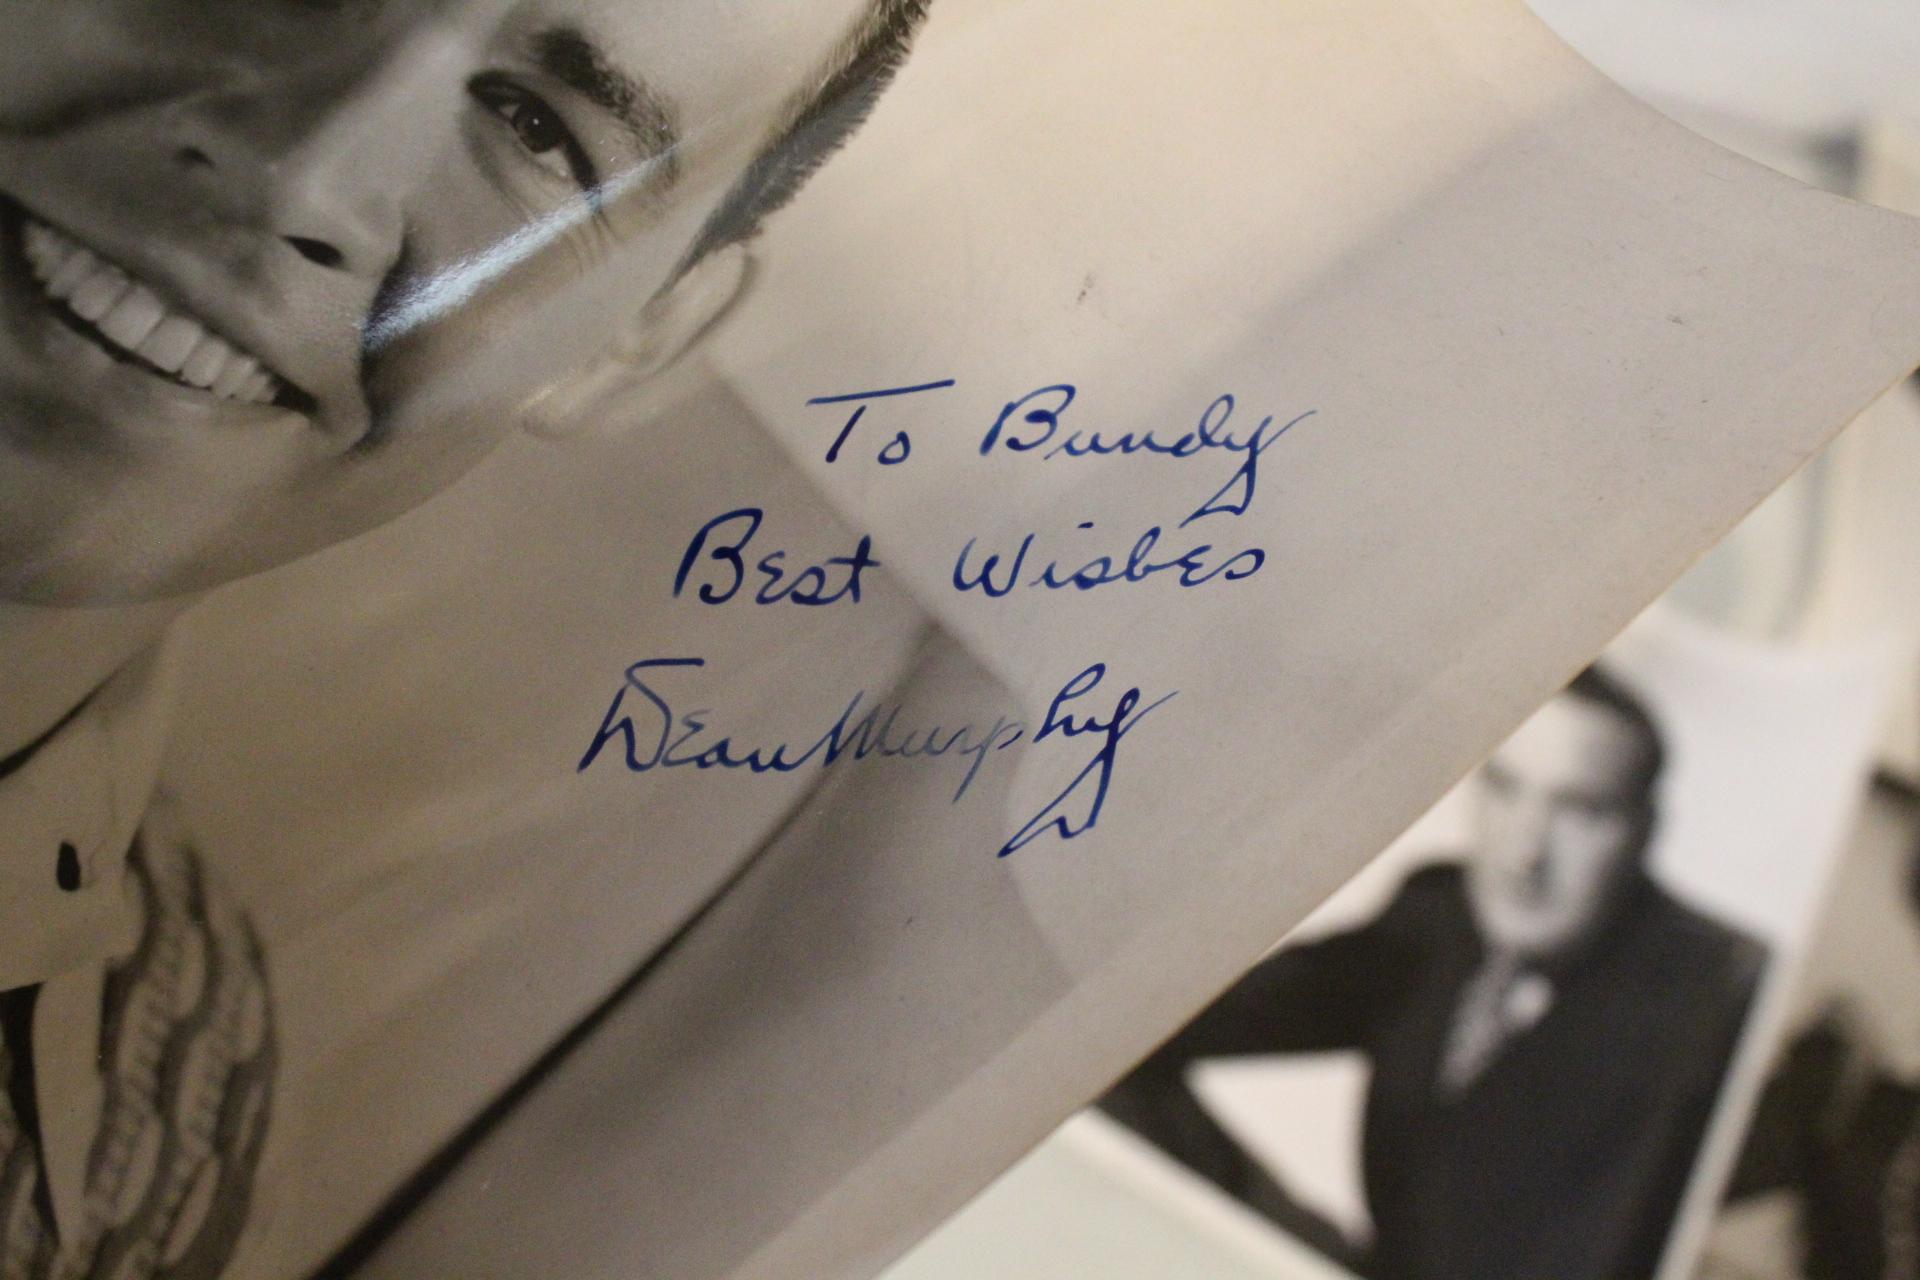 To Bundy
Best Wishes
Dean Murphy